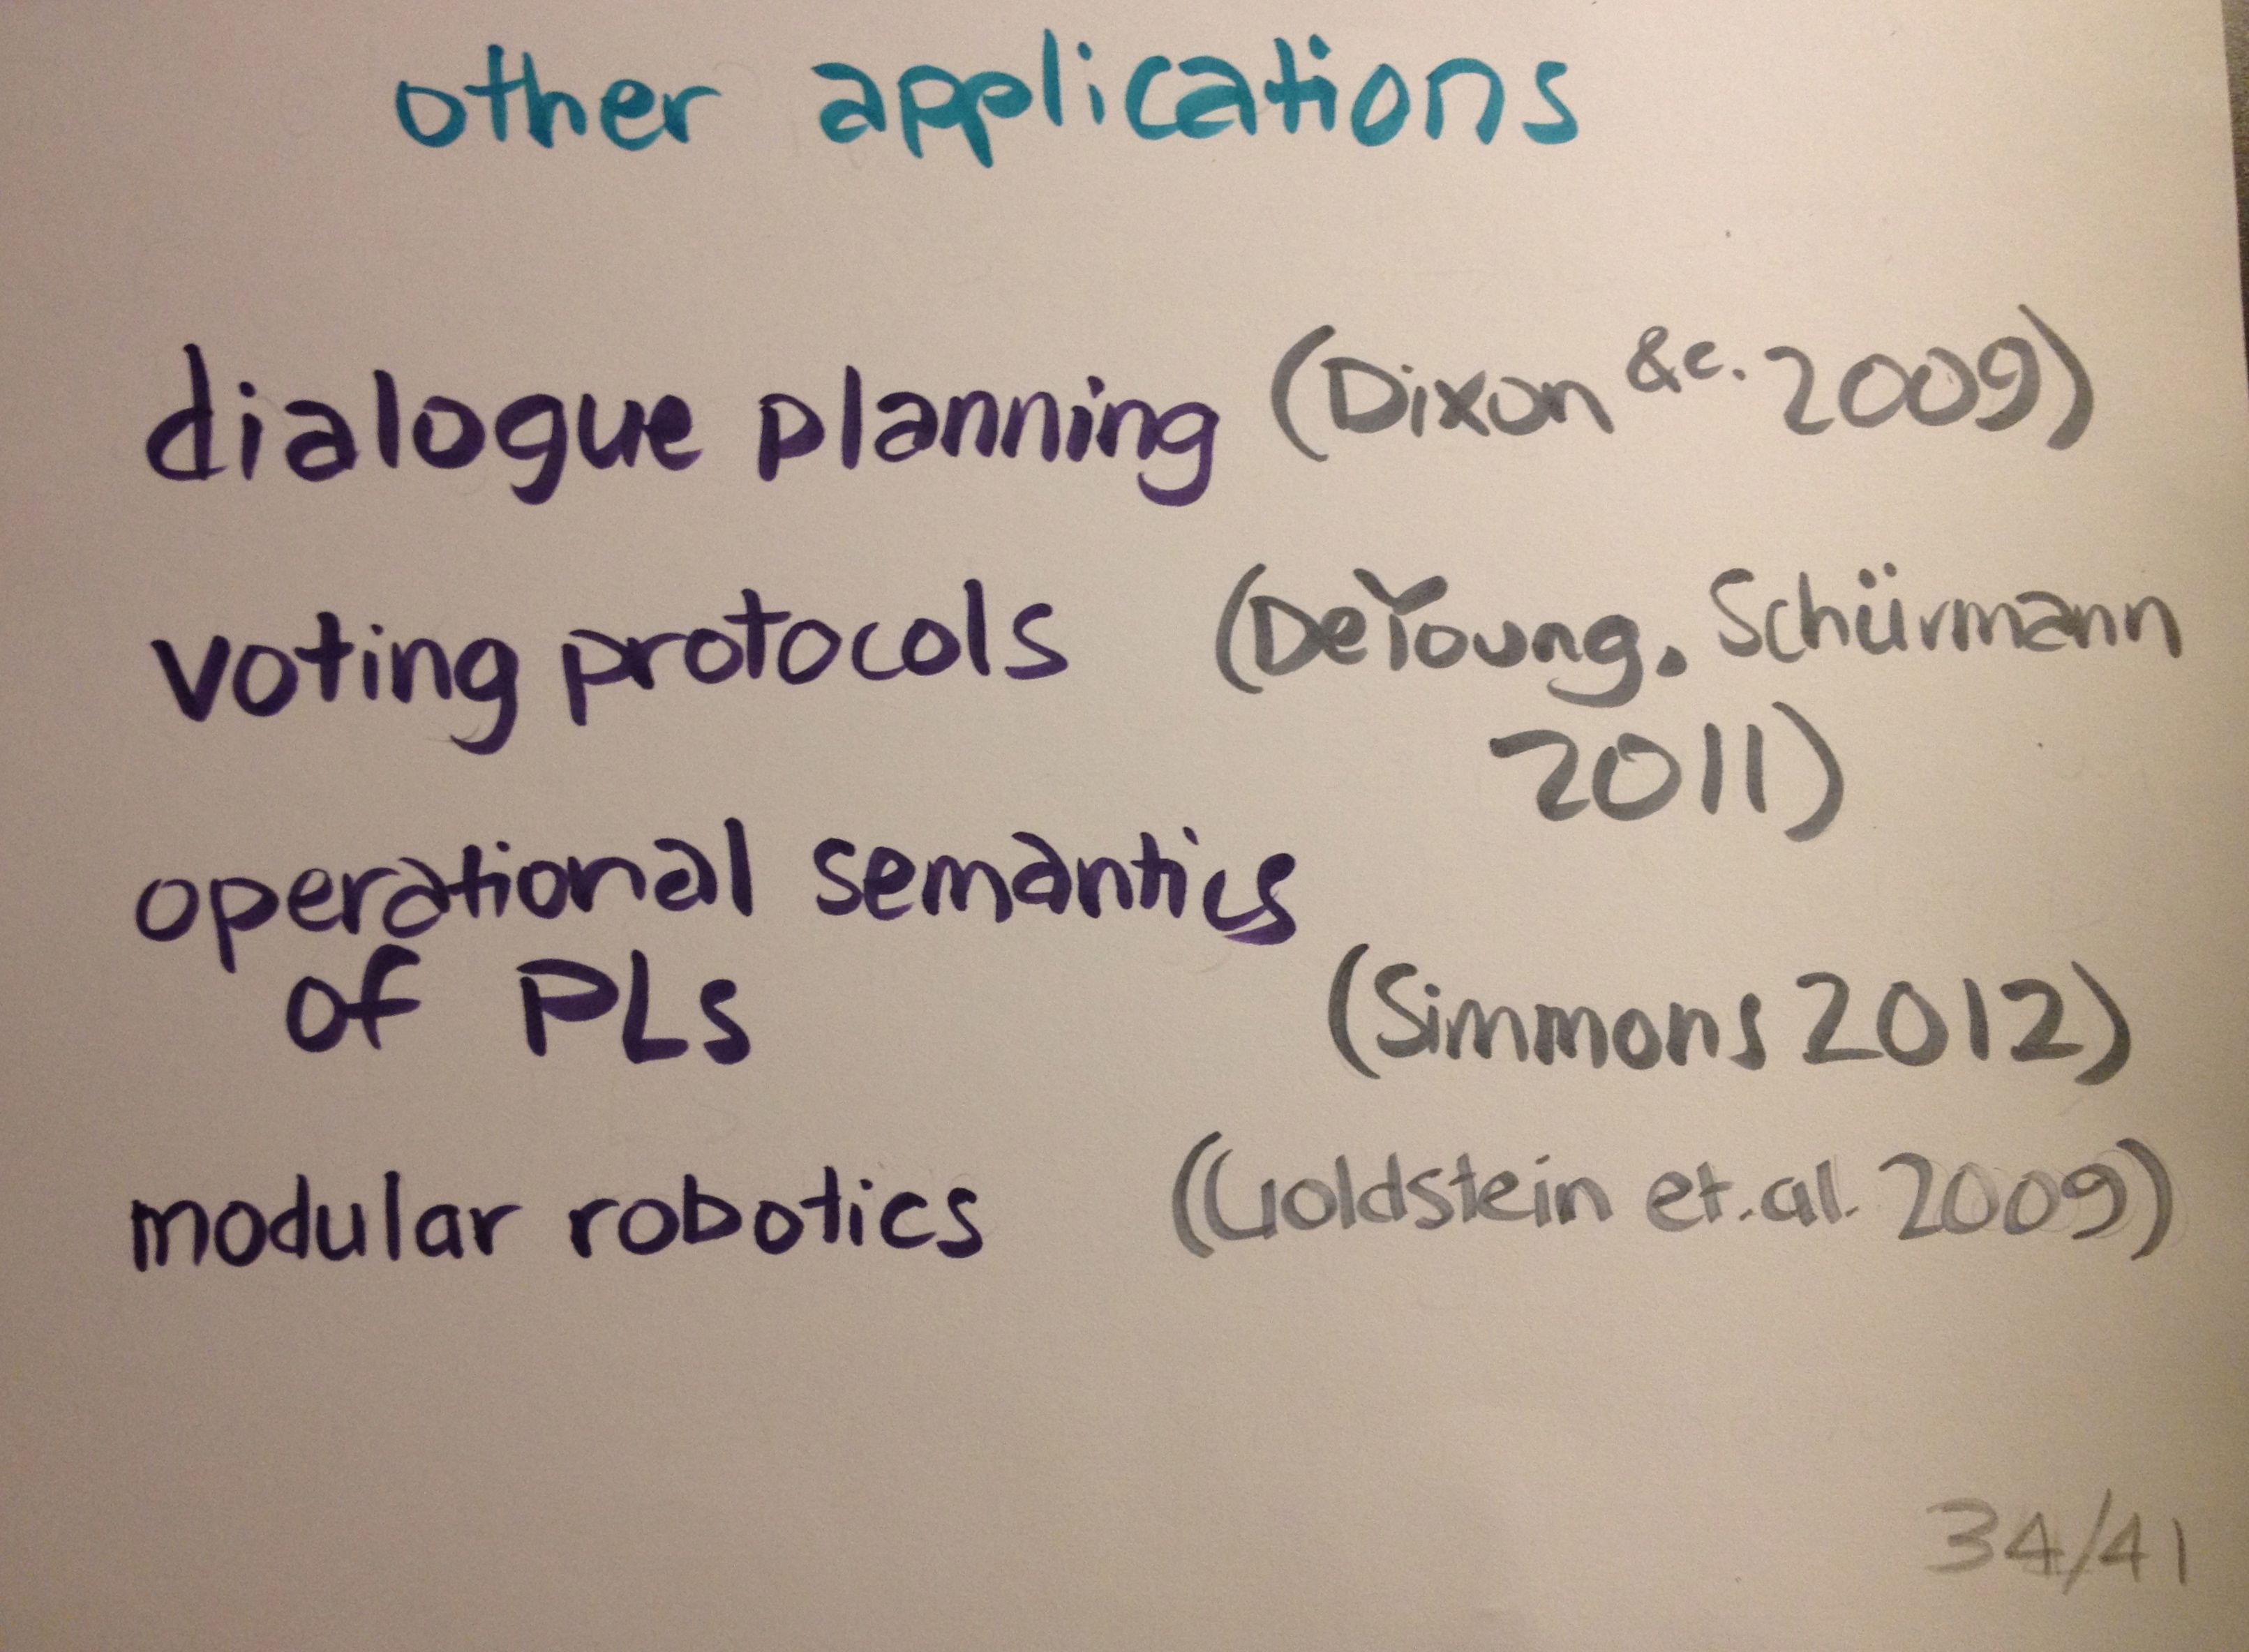 other applications
dialogue planning (Dixon &c. 2009)
voting protocols (DeYoung, Schürmann
2011)
operational semantics
of PLs (Simmons 2012)
modular robotics (Goldstein et.al. 2009)
34/41